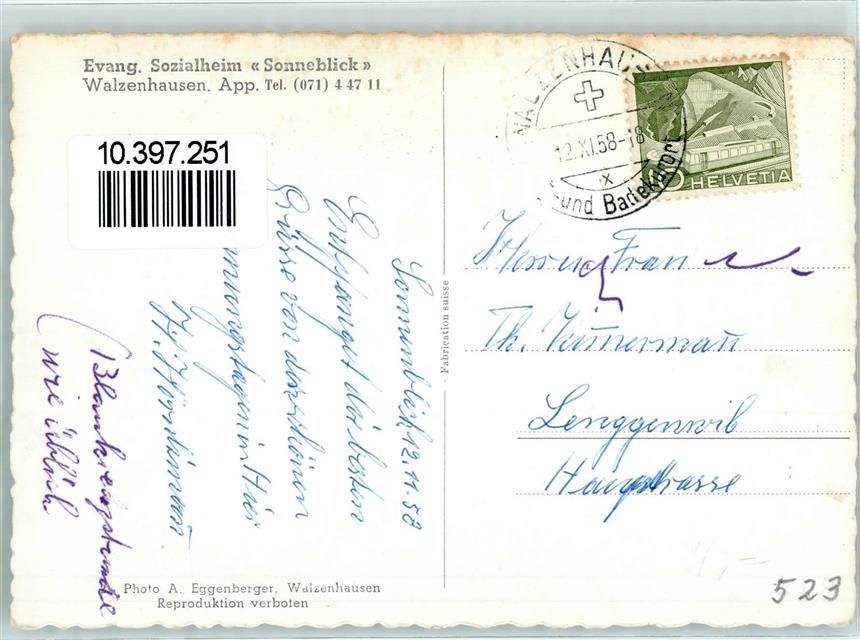 Evang. Sozialheim « Sonneblick »
Walzenhausen. App. Tel. (071) 4 47 11
10.397.251
WALZENHAUS
12.XI.58-18
X
und Badekurort
HELVETIA
Sonneblick 12.11.58
Empfanget die besten
Grüsse von den schönen
in Hier
Blaukreuzstunde
wie üblich
Fabrication suisse
Herrn Frau
Th. Zimmermann
Lenggenwil
Hauptstrasse
Photo A. Eggenberger, Walzenhausen
Reproduktion verboten
523